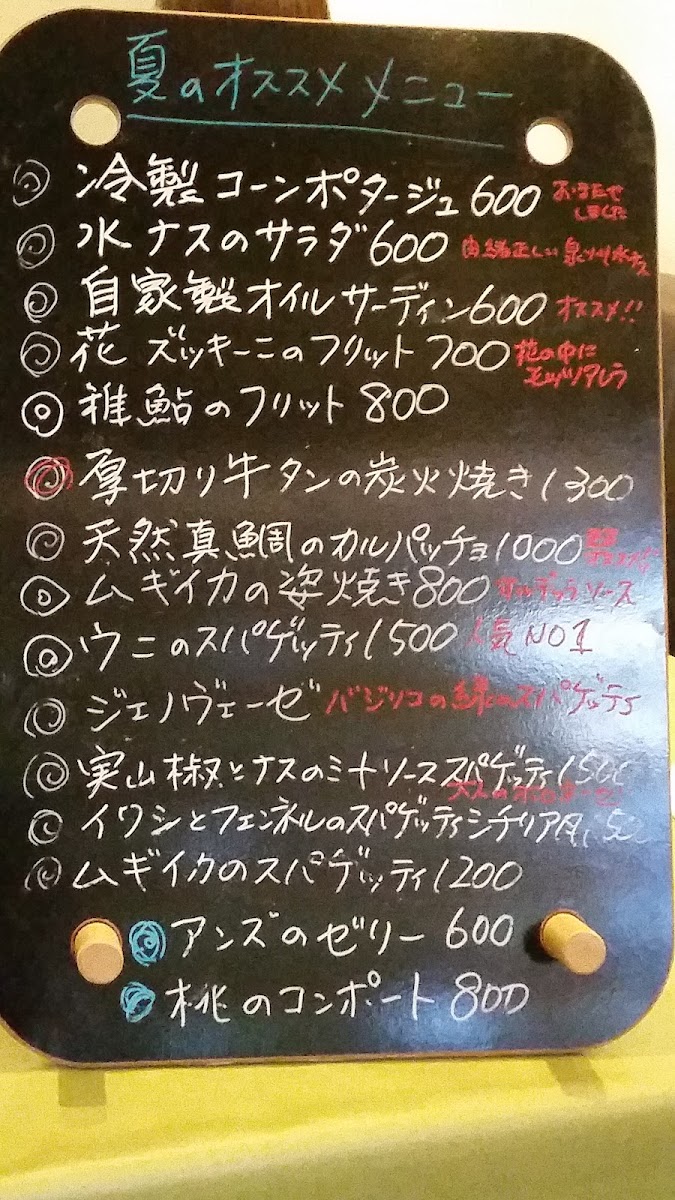 夏のオススメメニュー
冷製コーンポタージュ600 おまたせしました
水ナスのサラダ600 由緒正しい泉州水ナス
自家製オイルサーディン600 オススメ!!
花ズッキーニのフリット700 花の中にモッツァレラ
稚鮎のフリット800
厚切り牛タンの炭火焼き1300
天然真鯛のカルパッチョ1000
ムギイカの姿焼き800 サルデッラソース
ウニのスパゲッティ1500 人気NO1
ジェノヴェーゼ バジリコの緑のスパゲッティ
実山椒とナスのミートソーススパゲッティ1500
イワシとフェンネルのスパゲッティシチリア風
ムギイカのスパゲッティ1200
アンズのゼリー 600
桃のコンポート 800